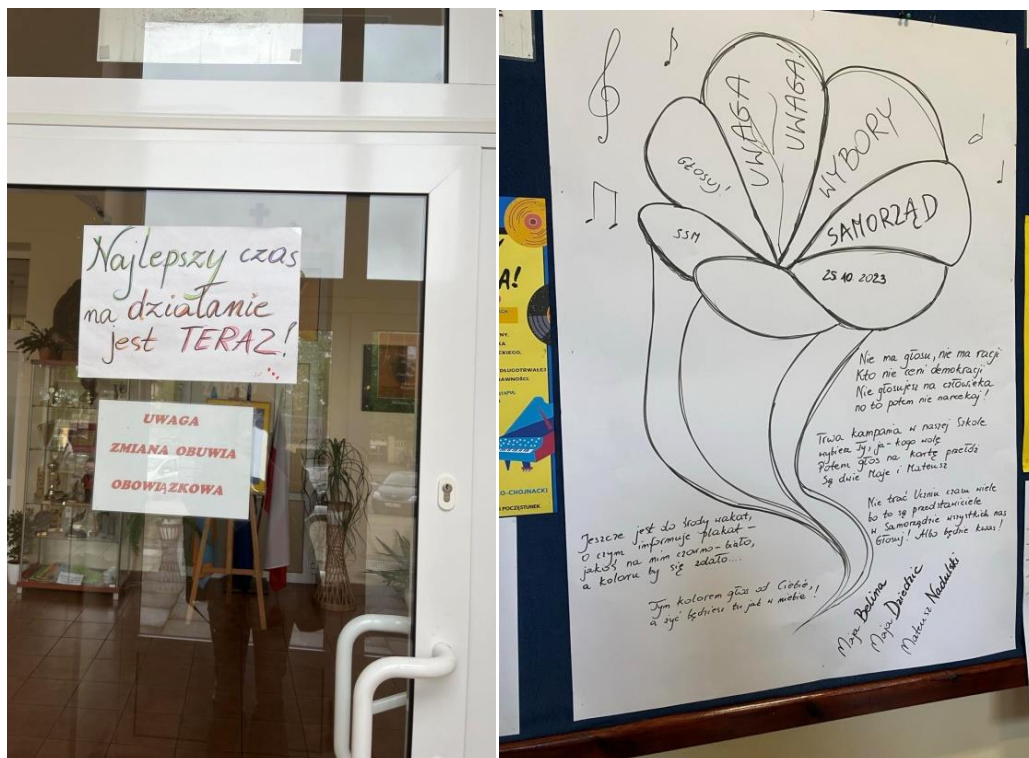 Najlepszy czas
na działanie
jest TERAZ!
UWAGA
ZMIANA OBUWIA
OBOWIĄZKOWA
UWAGA
UWAGA!
WYBORY
GŁOSUJ!
SAMORZĄD
SSM
25.10.2023
Nie ma głosu, nie ma racji
Kto nie ceni demokracji
Nie głosujesz na człowieka
no to potem nie narzekaj!
Trwa kampania w naszej Szkole
wybierz Ty, ja - kogo wolę
Potem głos na kartę prześlij
Są dwie Maje i Mateusz
Nie trać Uczniu czasu wiele
bo to są przedstawiciele
w Samorządzie wszystkich nas
Głosuj! Albo będzie kwas!
Jeszcze jest do środy wakat,
o czym informuje plakat -
jakoś na mim czarno-biało,
a koloru by się zdało....
Tym kolorem głos od Ciebie,
a żyć będziesz tu jak w niebie!
Maja Bolima
Maja Dziedzic
Mateusz Nadulski
A!
KA
ECKIEGO,
DŁUGOTRWAŁEJ
RAWNOŚCI.
O-CHOJNACKI
POCZĘSTUNEK